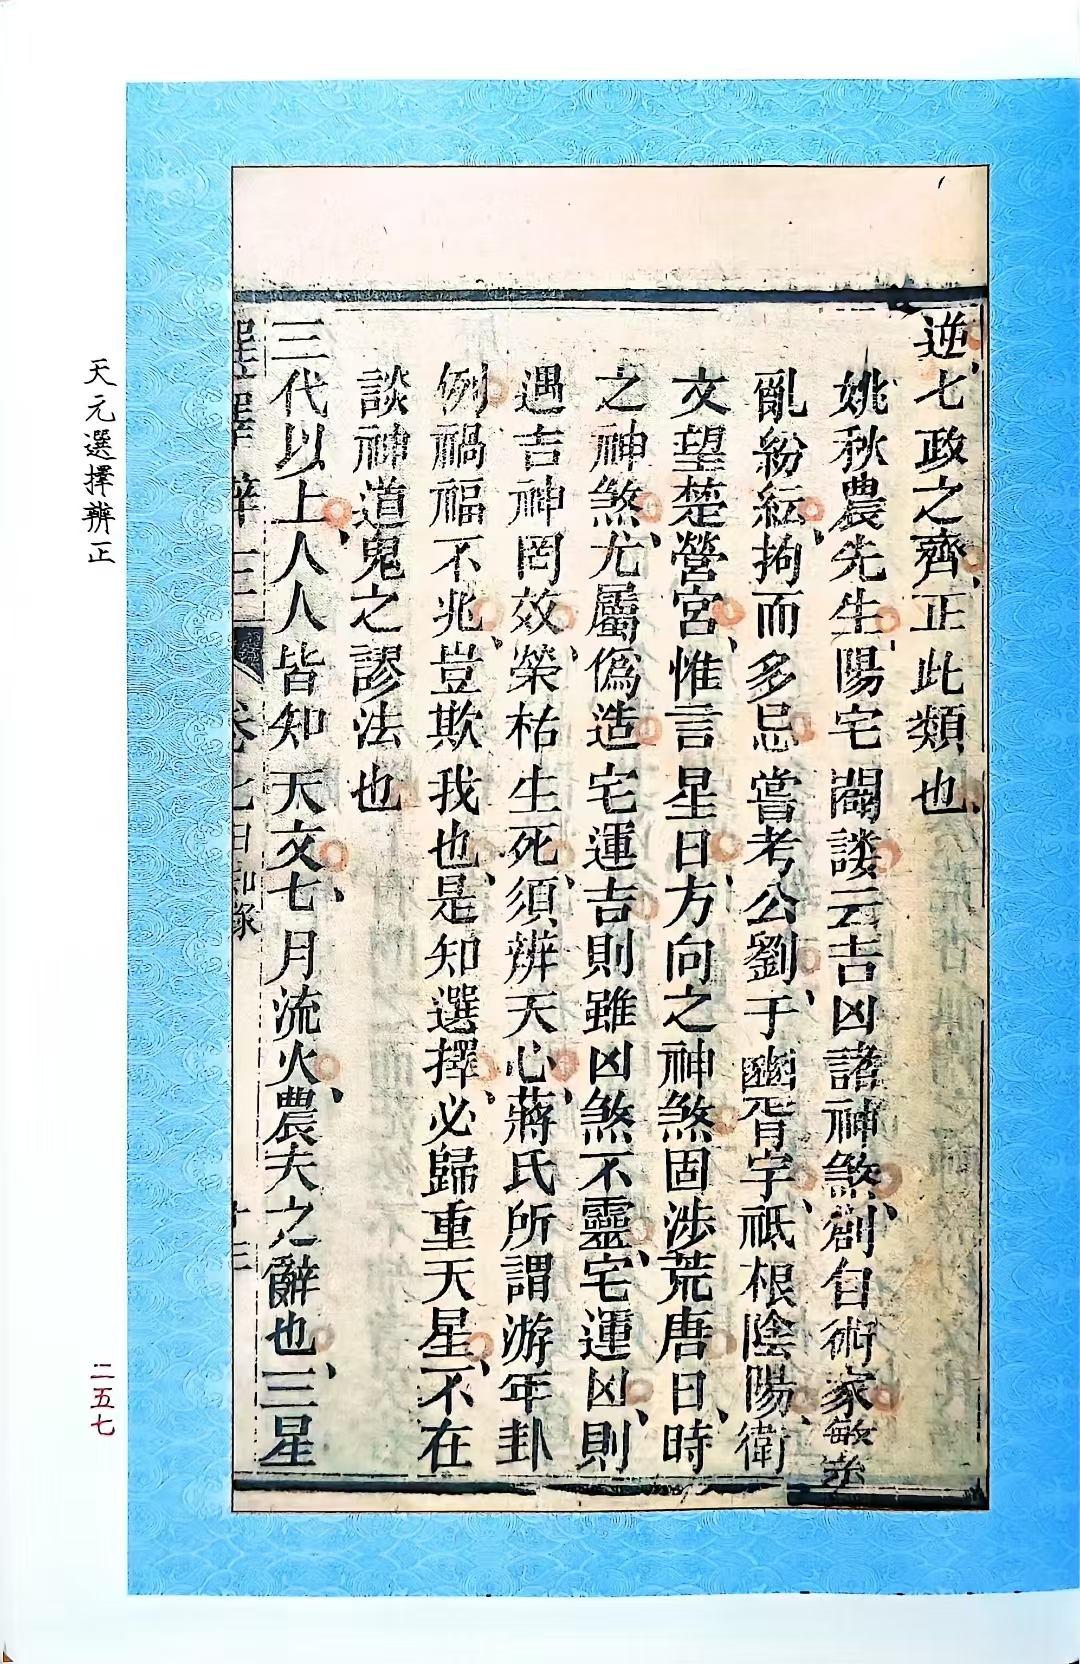 逆七政之齊正此類也
姚秋農先生陽宅闢謬云吉凶諸神煞創自術家
亂紛紜拘而多忌嘗考公劉于豳胥宇祗根陰陽衛
文望楚營宮惟言星日方向之神煞固涉荒唐日時
之神煞尤屬偽造宅運吉則雖凶煞不靈宅運凶則
遇吉神罔效榮枯生死須辨天心蔣氏所謂游年卦
例禍福不兆豈欺我也是知選擇必歸重天星不在
談神道鬼之謬法也
三代以上人人皆知天文七月流火農夫之辭也三星
天元選擇辨正
二五七